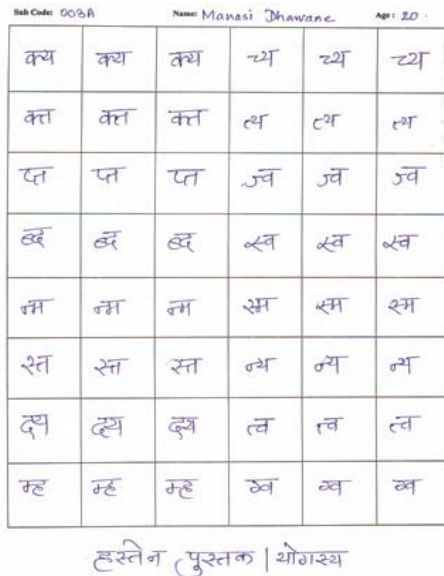 Sub Code: 003A Name: Manasi Dhawane Age: 20.
क्य क्य क्य च्य च्य च्य
क्त क्त क्त त्य त्य त्य
प्त प्त प्त ज्व ज्व ज्व
ब्द ब्द ब्द स्व स्व स्व
न्म न्म न्म स्म स्म स्म
स्त स्त स्त न्य न्य न्य
द्य द्य द्य त्व त्व त्व
म्ह म्ह म्ह ग्व ग्व ग्व
हस्तेन पुस्तक | योगस्य